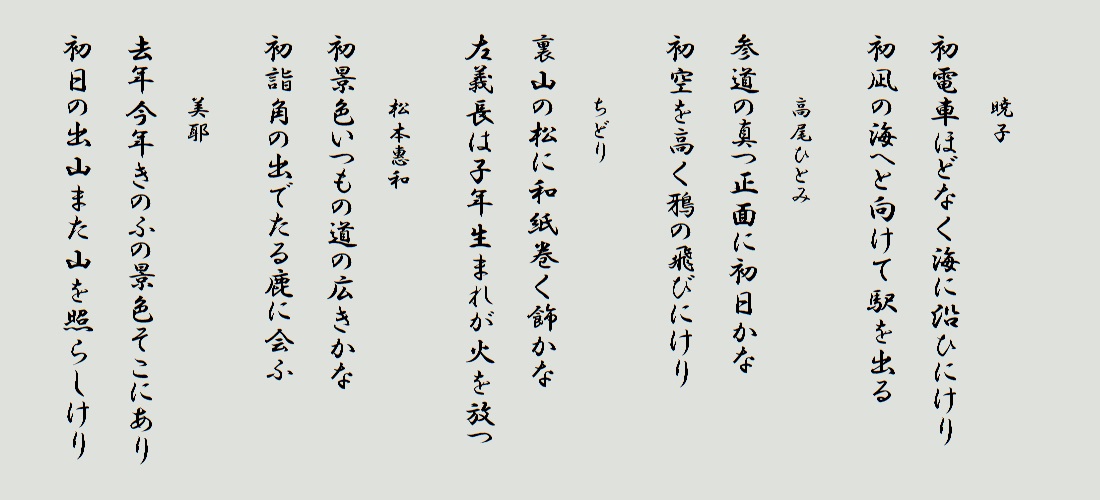 暁子
初電車ほどなく海に沿ひにけり
初凪の海へと向けて駅を出る
高尾ひとみ
参道の真つ正面に初日かな
初空を高く鴉の飛びにけり
ちどり
裏山の松に和紙巻く飾かな
左義長は子年生まれが火を放つ
松本惠和
初景色いつもの道の広きかな
初詣角の出でたる鹿に会ふ
美耶
去年今年きのふの景色そこにあり
初日の出山また山を照らしけり